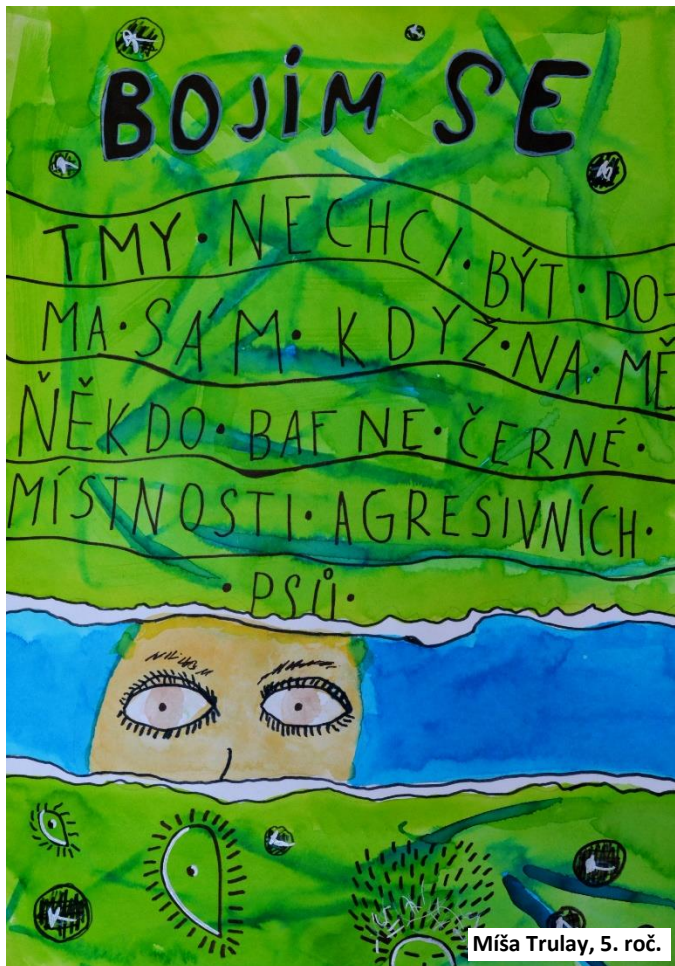 BOJÍM SE
TMY · NECHCI · BÝT · DO-
MA · SÁM · KDYŽ · NA · MĚ
ŇĚKDO · BAFNE · ČERNÉ ·
MÍSTNOSTI · AGRESIVNÍCH ·
· PSŮ ·
Míša Trulay, 5. roč.